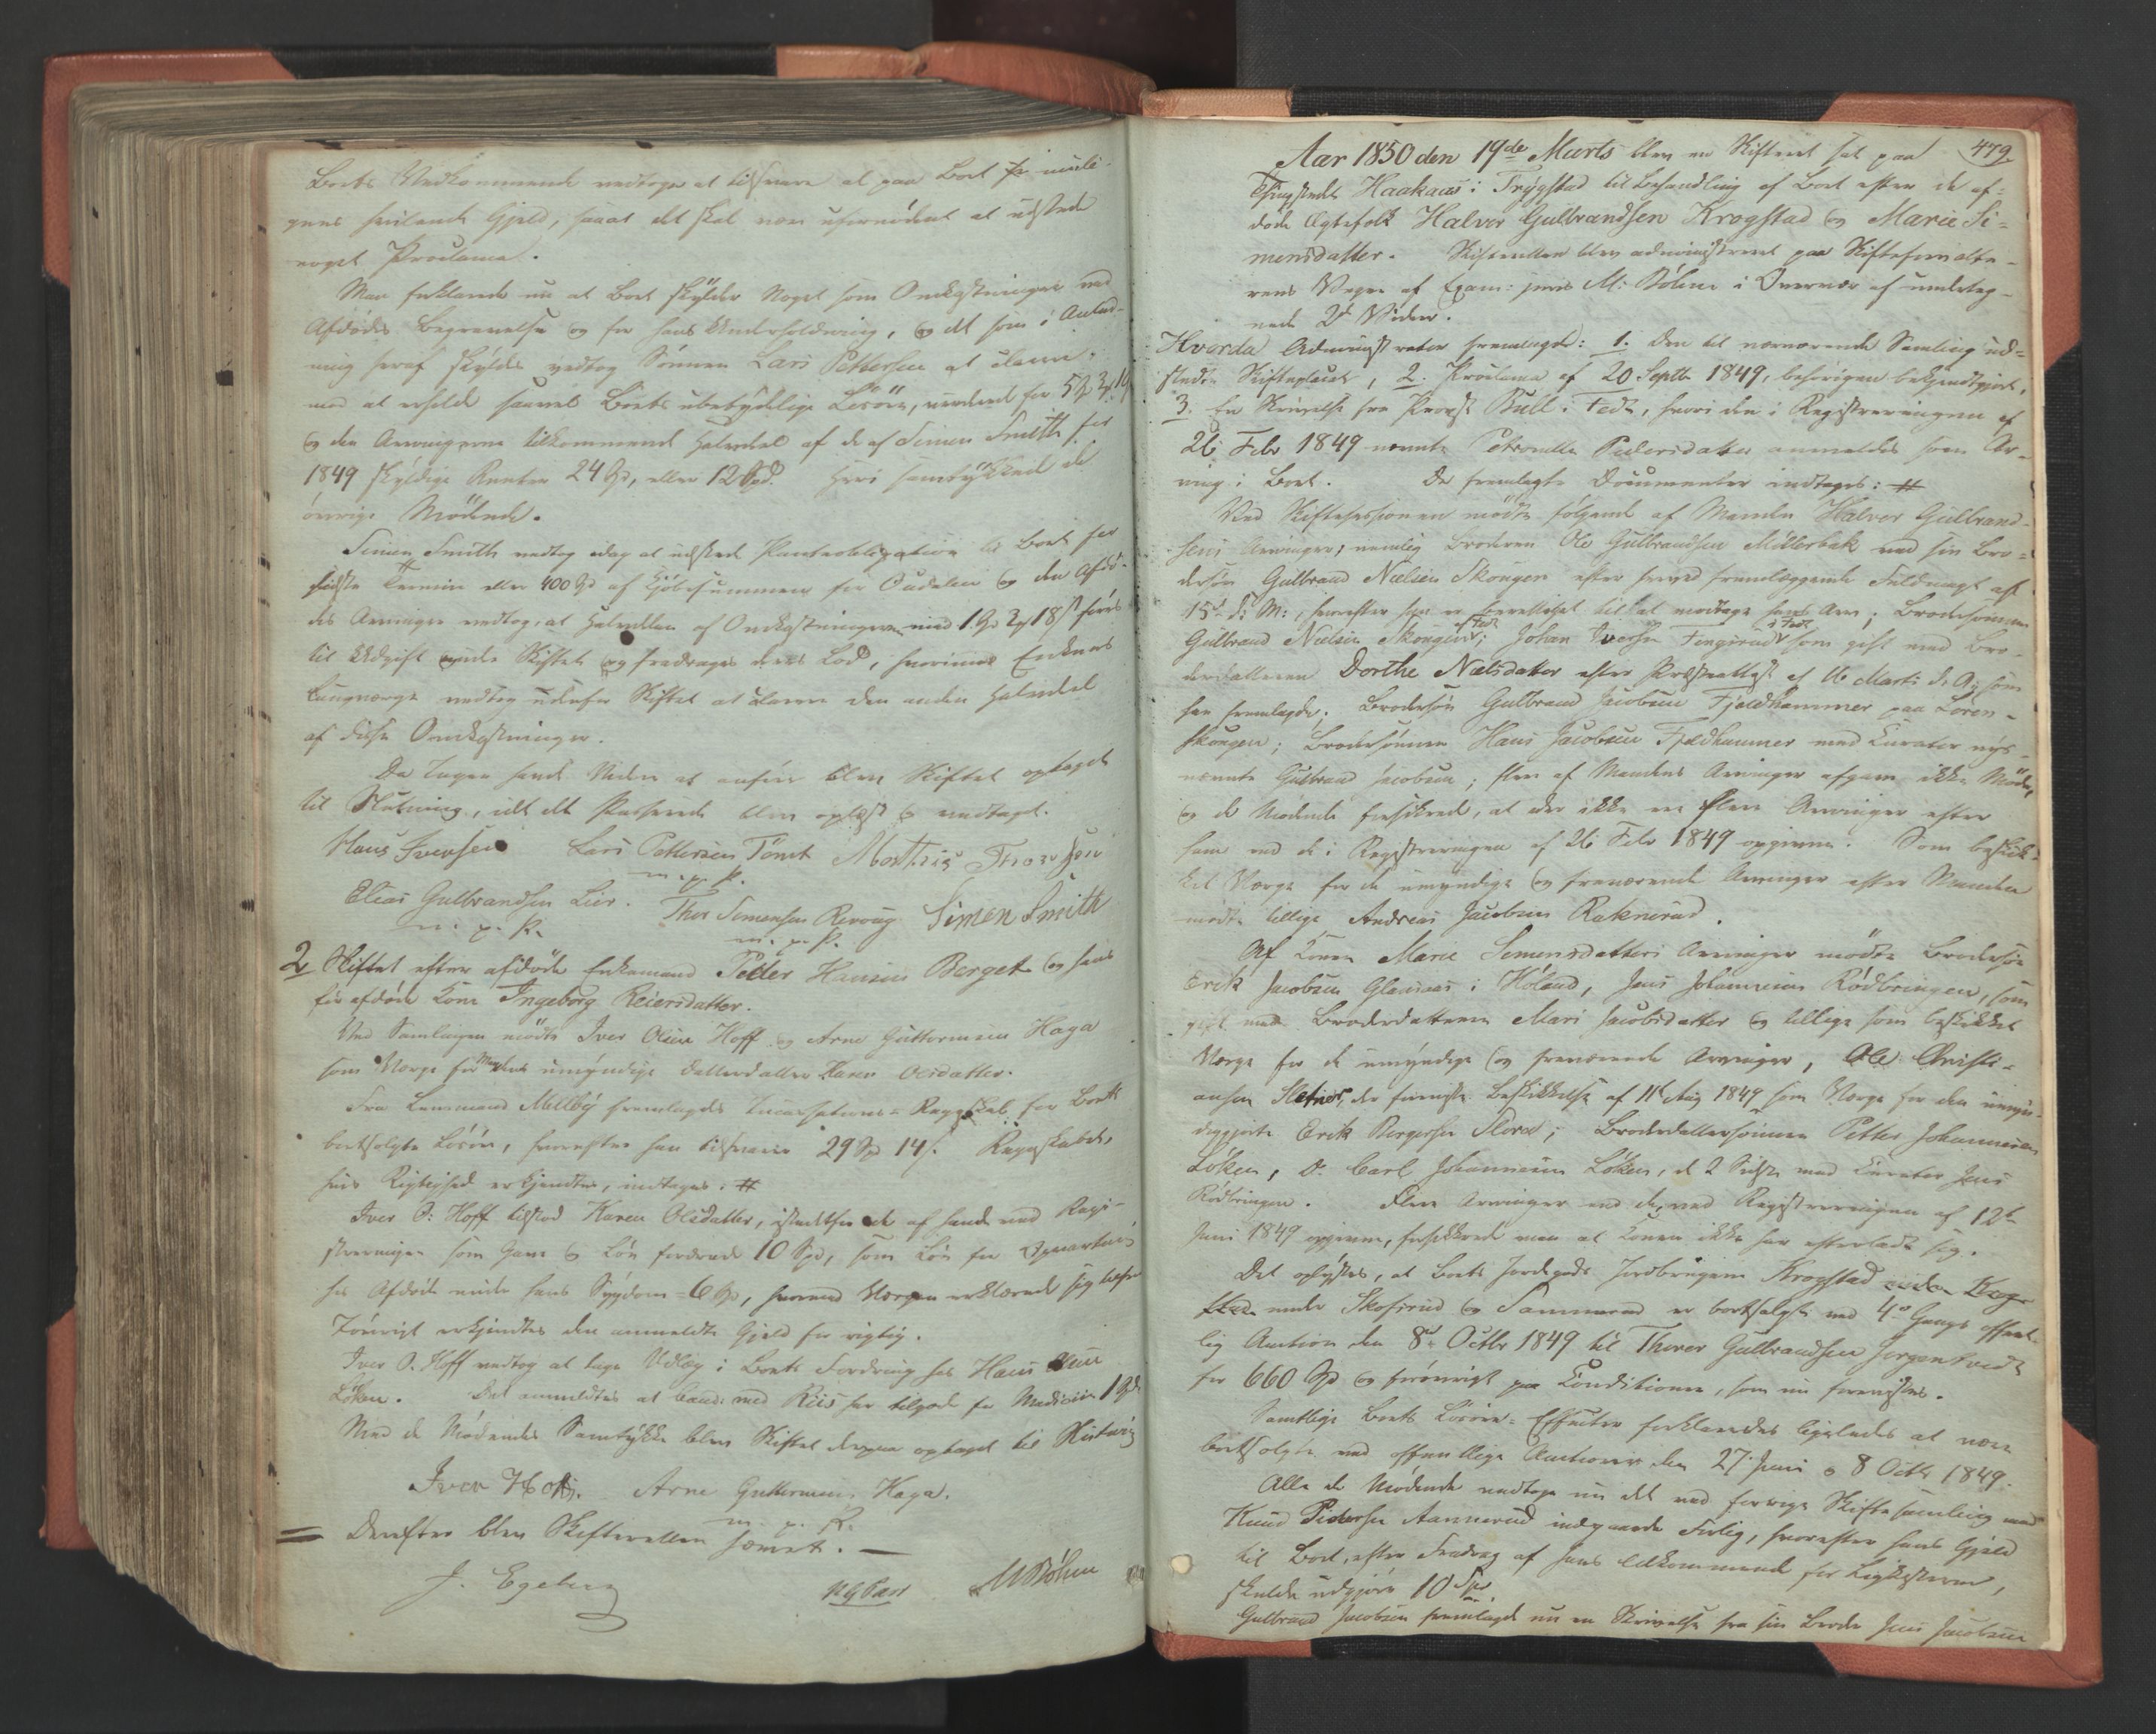 Boets Vedkommende vedtoge at tilsvare al paa Boet muli-
gens heftende Gjeld, saaat det skal være ufornødent at udstede
noget Proclama.
Man forklarede nu at Boet skylder Noget som Omkostninger ved
Afdødes Begravelse og for hans Underholdning, og det som i Anled-
ning heraf skyldes vedtog Sønnen Lars Pettersen at clarere,
mod at erholde saavel Boets ubetydelige Løsøre, vurderet for
og den Arvingerne tilkommende Halvdel af de af Simen Smith for
1849 skyldige Renter 24 Spd, eller 12 Spd. Heri samtykkede de
øvrige Mødende.
Simen Smith vedtog idag at udstede Panteobligation til Boet for
sidste Termin eller 400 Spd af Kjøbesummen for og den Afdø-
des Arvinger vedtog, at Halvdelen af Omkostningerne med føres
til Udgift under Skiftet og fradrages deres Lod, hvorimod Enkens
Laugværge vedtog udenfor Skiftet at clarere den anden Halvdel
af disse Omkostninger.
Da Ingen havde Videre at anføre blev Skiftet optaget
til Slutning, idet det Passerede blev oplæst og vedtaget.
Hans Iversen Lars Pettersen Mathis
m. p. P.
Elias Gulbrandsen Lier. Thor Simensen Simen Smith
m. p. P. m. p. P.
2 Skiftet efter afdøde Enkemand Petter Hansen Berget og hans
før afdøde Kone Ingeborg Reiersdatter.
Ved Samlingen mødte Iver Olsen Hoff og Arne Guttormsen Haga
som Værge for Mandens umyndige Datterdatter Karen Olsdatter.
Fra Lensmand Mellby fremlagdes Incassations-Regnskab for Boets
bortsolgte Løsøre, hvorefter han tilsvarer 29 Spd 14 s. Regnskabet,
hvis Rigtighed erkjendtes, indtages: #
Iver O: Hoff tilstod Karen Olsdatter, istedetfor de af hende ved Regi-
streringen som Gave og Løn fordrede 10 Spd, som Løn for
hos Afdøde under hans Sygdom = 6 Spd, hvormed Værgen erklærede sig tilfreds
Forøvrigt erkjendtes den anmeldte Gjeld for rigtig.
Iver O. Hoff vedtog at tage Udlæg i Boets Fordring hos Hans Olsen
Løken. Det anmeldtes at Cand: med Riis har tilgode for Medicin 1 Spd
Med de Mødendes Samtykke blev Skiftet derpaa optaget til Slutning
Iver Hoff. Arne Guttormsen Haga.
m. p. P.
= Derefter blev Skifteretten hævet. —
J. Egeberg MBøhm
Aar 1850 den 19de Marts blev en Skifteret sat paa 479.
Thingstedet Haakaas i Trygstad til Behandling af Boet efter de af-
døde Ægtefolk Halvor Gulbrandsen Krogstad og Marie Si-
mensdatter. Skifteretten blev administreret paa Skifteforvalte-
rens Vegne af Exam: juris M: Bøhm i Overvær af underteg-
nede 2de Vidner.
Hvorda Administrator fremlagde: 1. Den til nærværende Samling ud-
stedte Skifteplacat, 2. Proclama af 20 Septbr 1849, behørigen bekjendtgjort,
3. En Skrivelse fra Provst Bull i Fedt, hvori den i Registreringen af
26 Febr 1849 nævnte Petronelle Pedersdatter anmeldes som Ar-
ving i Boet. De fremlagte Documenter indtages: #
Ved Skiftesessionen mødte følgende af Manden Halvor Gulbrand-
sens Arvinger; nemlig Broderen Ole Gulbrandsen Møllerbak med sin Bro-
dersøn Gulbrand Nielsen Skougen efter herved fremlæggende Fuldmagt af
15de d: M:, hvorefter han er berettiget til at modtage hans Arv; Brodersønnen
Gulbrand Nielsen Skougen; Johan Iversen som gift med Bro-
derdatteren Dorthe Nielsdatter efter Præsteattest af 16 Marts d: A: som
han fremlagde; Brodersøn Gulbrand Jacobsen Fjeldhammer paa Loren-
skougen; Brodersønnen Hans Jacobsen Fjeldhammer med Curator nys-
nævnte Gulbrand Jacobsen; flere af Mandens Arvinger afgave ikke Møde,
og de Mødende forsikrede, at der ikke ere flere Arvinger efter
ham end de i Registreringen af 26 Febr 1849 opgivne. Som beskik-
ket Værge for de umyndige og fraværende Arvinger efter Manden
mødte tillige Andreas Jacobsen Raknerud.
Af Konen Marie Simensdatters Arvinger mødte Brodersøn
Erik Jacobsen i Høland, Jens Johannesen Rødbringen, som
gift med Broderdatteren Mari Jacobsdatter og tillige som beskikket
Værge for de umyndige og fraværende Arvinger, Ole Christi-
ansen Sletner, der foreviste Beskikkelse af 11te Aug 1849 som Værge for den umyn-
diggjorte Erik; Broderdattersønnen Petter Johannesen
Løken, Do Carl Johannesen Løken, de 2 Sidste med Curator Jens
Rødbringen. Flere Arvinger end de, ved Registreringen af 12te
Juni 1849 opgivne, forsikkrede man at Konen ikke har efterladt sig.
Det oplystes, at Boets Jordegods Jordbrugene Krogstad
under Skofsrud og Sannerud er bortsolgte ved 4de Gangs offent-
lig Auction den 8de Octbr 1849 til Thorer Gulbrandsen
for 660 Spd og forøvrigt paa Conditioner, som nu forevistes.
Samtlige Boets Løsøre-Effecter forklaredes ligeledes at være
bortsolgte ved offentlige Auctioner den 27 Juni og 8 Octbr 1849.
Alle de Mødende vedtoge nu det ved forrige Skiftesamling med
Knud Pedersen Aannerud indgaaede Forlig, hvorefter hans Gjeld
til Boet, efter Fradrag af hans Tilkommende for Ligkisterne,
skulde udgjøre 10 Spd.
Gulbrand Jacobsen fremlagde nu en Skrivelse fra sin Broder Jens Jacobsen